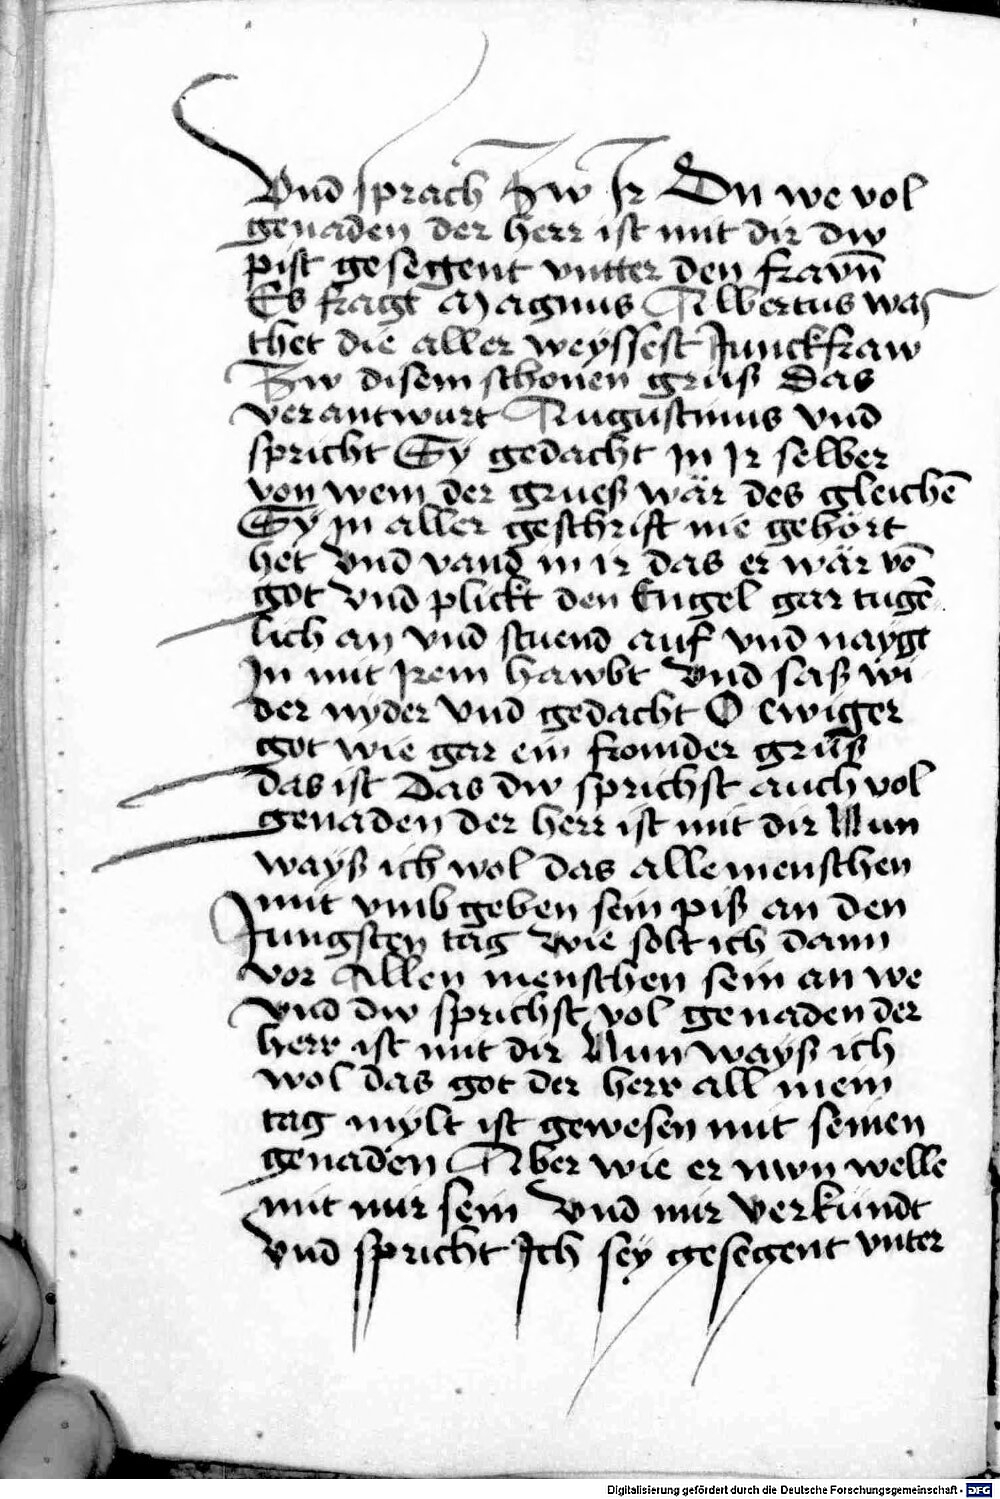 Vnd sprach Zw Ir On we vol
genaden der herr ist mit dir dw
pist gesegent vntter den fravn̄
Es fragt Magnus Albertus was
thet die aller weyssest Junckfraw
Zw disem schonen gruß Das
verantwurt Augustinus vnd
spricht Sy gedacht in Ir selber
von wem der grueß wär des gleichē
Sy in aller geschrift nie gehört
het Vnd vand in ir das er wär vō
got Vnd plickt den Engel gar tugē
lich an vnd stuend auf vnd naygt
In mit Irem hawbt Vnd saß wi
der nyder Vnd gedacht O ewiger
got wie gar ein fromder gruß
das ist Das dw sprichst auch vol
genaden der herr ist mit dir Nun
wayß ich wol das alle menschen
mit vmb geben sein piß an den
Jungsten tag wie solt ich dann
vor Allen menschen sein an we
vnd dw sprichst vol genaden der
herr ist mit dir Nun wayß ich
wol das got der herr all mein
tag mylt ist gewesen mit seinen
genaden Aber wie er nwn welle
mit mir sein Vnd mir verkündt
vnd spricht Ich sey gesegent vnter
Digitalisierung gefördert durch die Deutsche Forschungsgemeinschaft - DFG